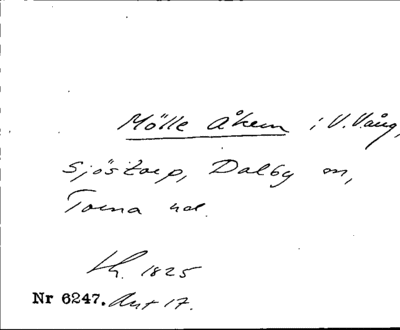 Mölle åkern i V. Vång,
Sjöstorp, Dalby sn,
Torna hd.
1825
Nr 6247. Akt 17.